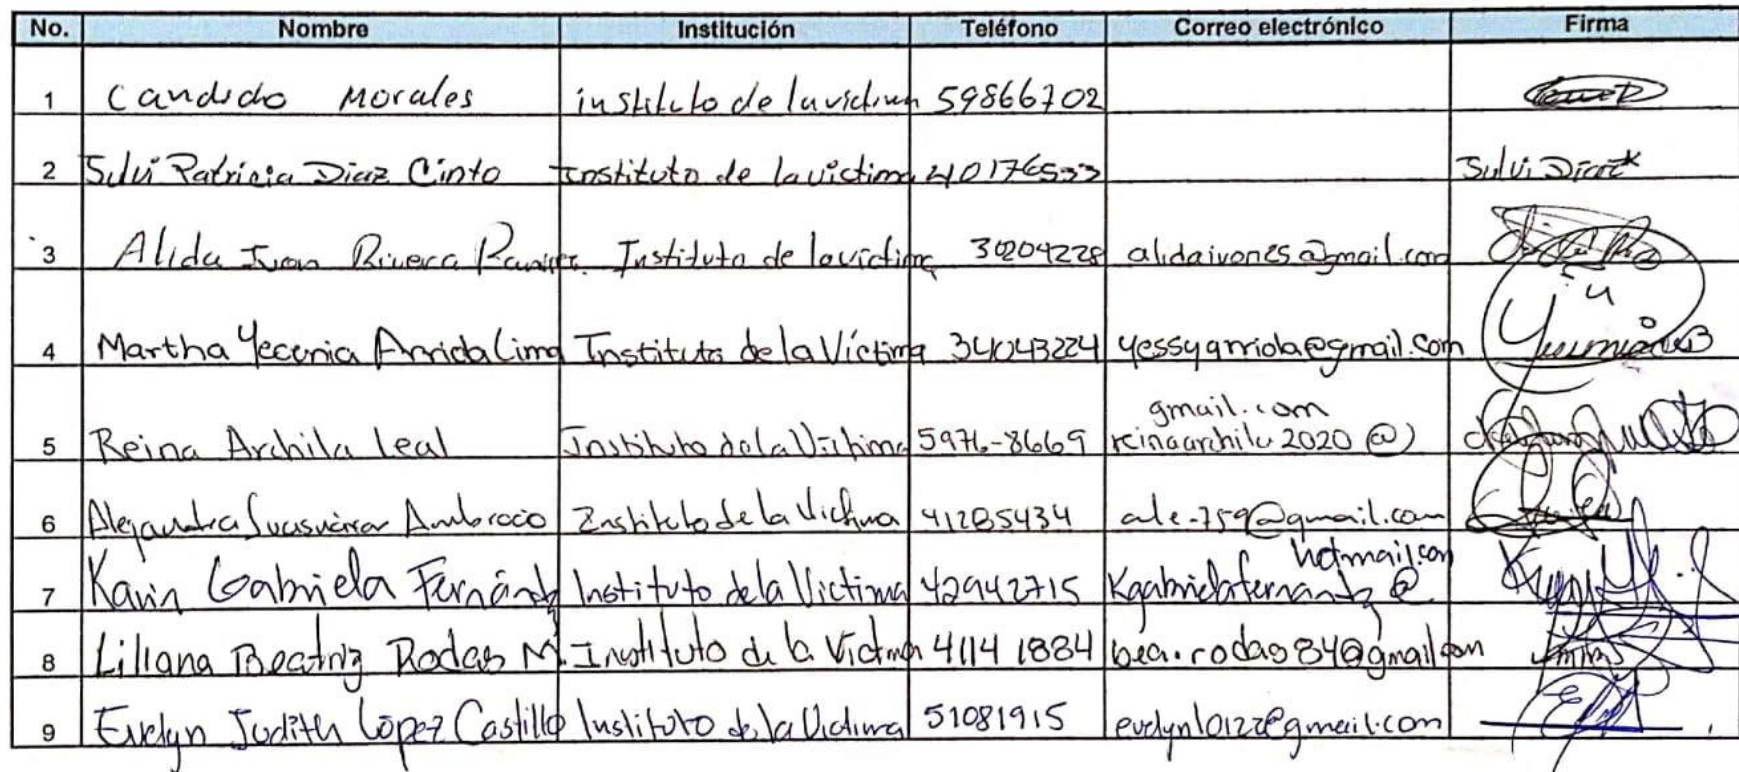 No. Nombre Institución Teléfono Correo electrónico Firma
1 Candido Morales instituto de la victima 59866702
2 Silvi Patricia Diaz Cinto Instituto de la victima 40176533 Silvi Diaz
3 Alida Ivon Rivera Ramirez. Instituto de la victima 30204228 alidaivon25@gmail.com
4 Martha Yecenia Arriola Lima Instituto de la Víctima 34043224 yessyarriola@gmail.com
gmail.com
5 Reina Archila leal Instituto de la Victima 5976-8669 reinaarchila2020@
6 Alejandra Ambrocio Instituto de la Victima 41285434 ale-759@gmail.com
hotmail.com
7 Karin Gabriela Fernández Instituto de la Victima 42942715 Kgabrielafernandz@
8 Liliana Beatriz Rodas M. Instituto de la Victima 4114 1884 bea.rodas84@gmail.com
9 Evelyn Judith López Castillo Instituto de la Victima 51081915 evelynl0122@gmail.com